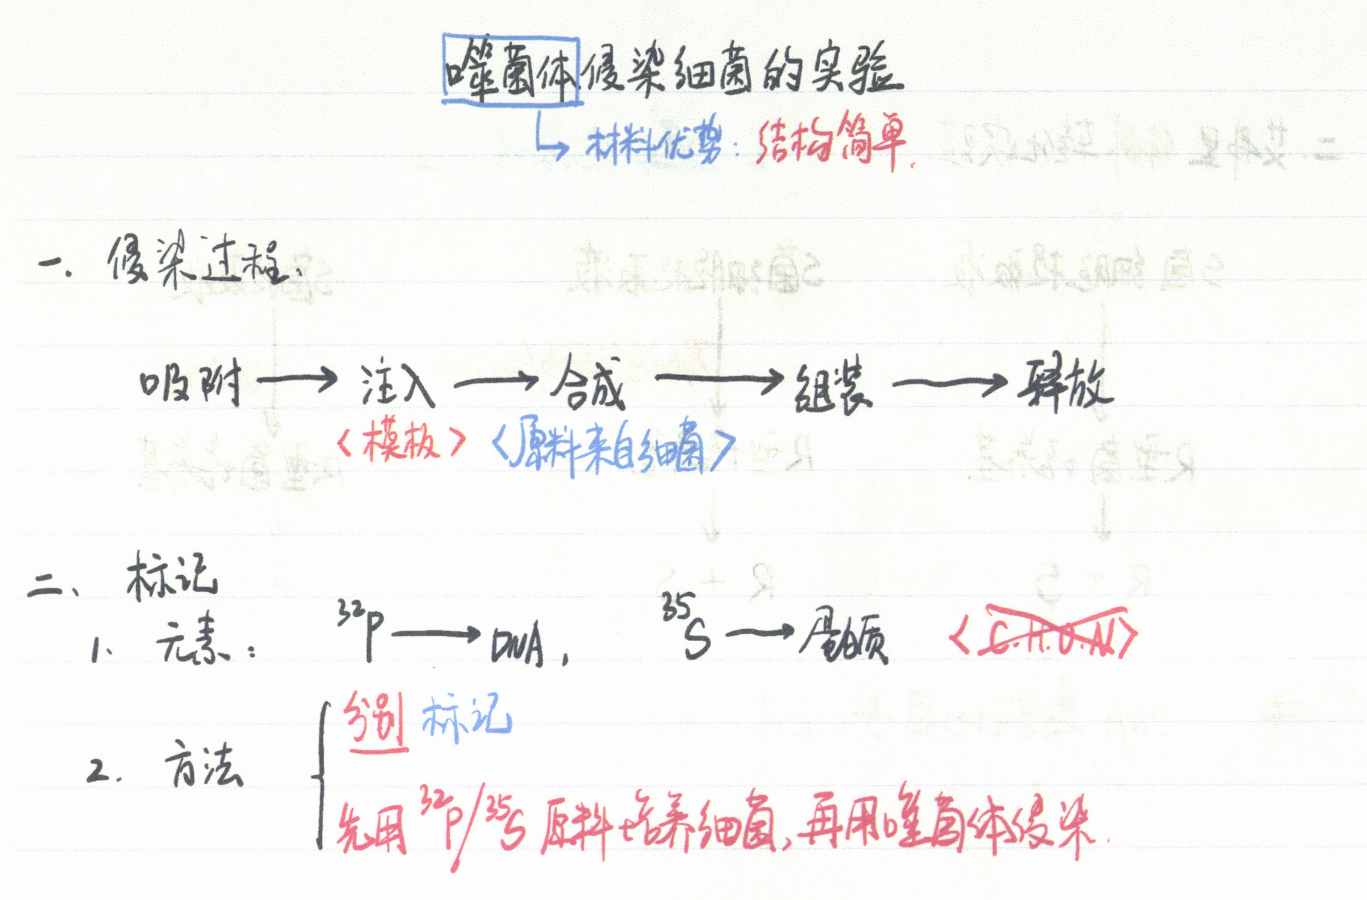 噬菌体侵染细菌的实验
材料优势：结构简单.
一. 侵染过程.
吸附 → 注入 → 合成 → 组装 → 释放
<模板> <原料来自细菌>
二、标记
1. 元素： ³²P → DNA, ³⁵S → 蛋白质 <C.H.O.N>
分别 标记
2. 方法
先用 ³²P/³⁵S 原料培养细菌,再用噬菌体侵染.